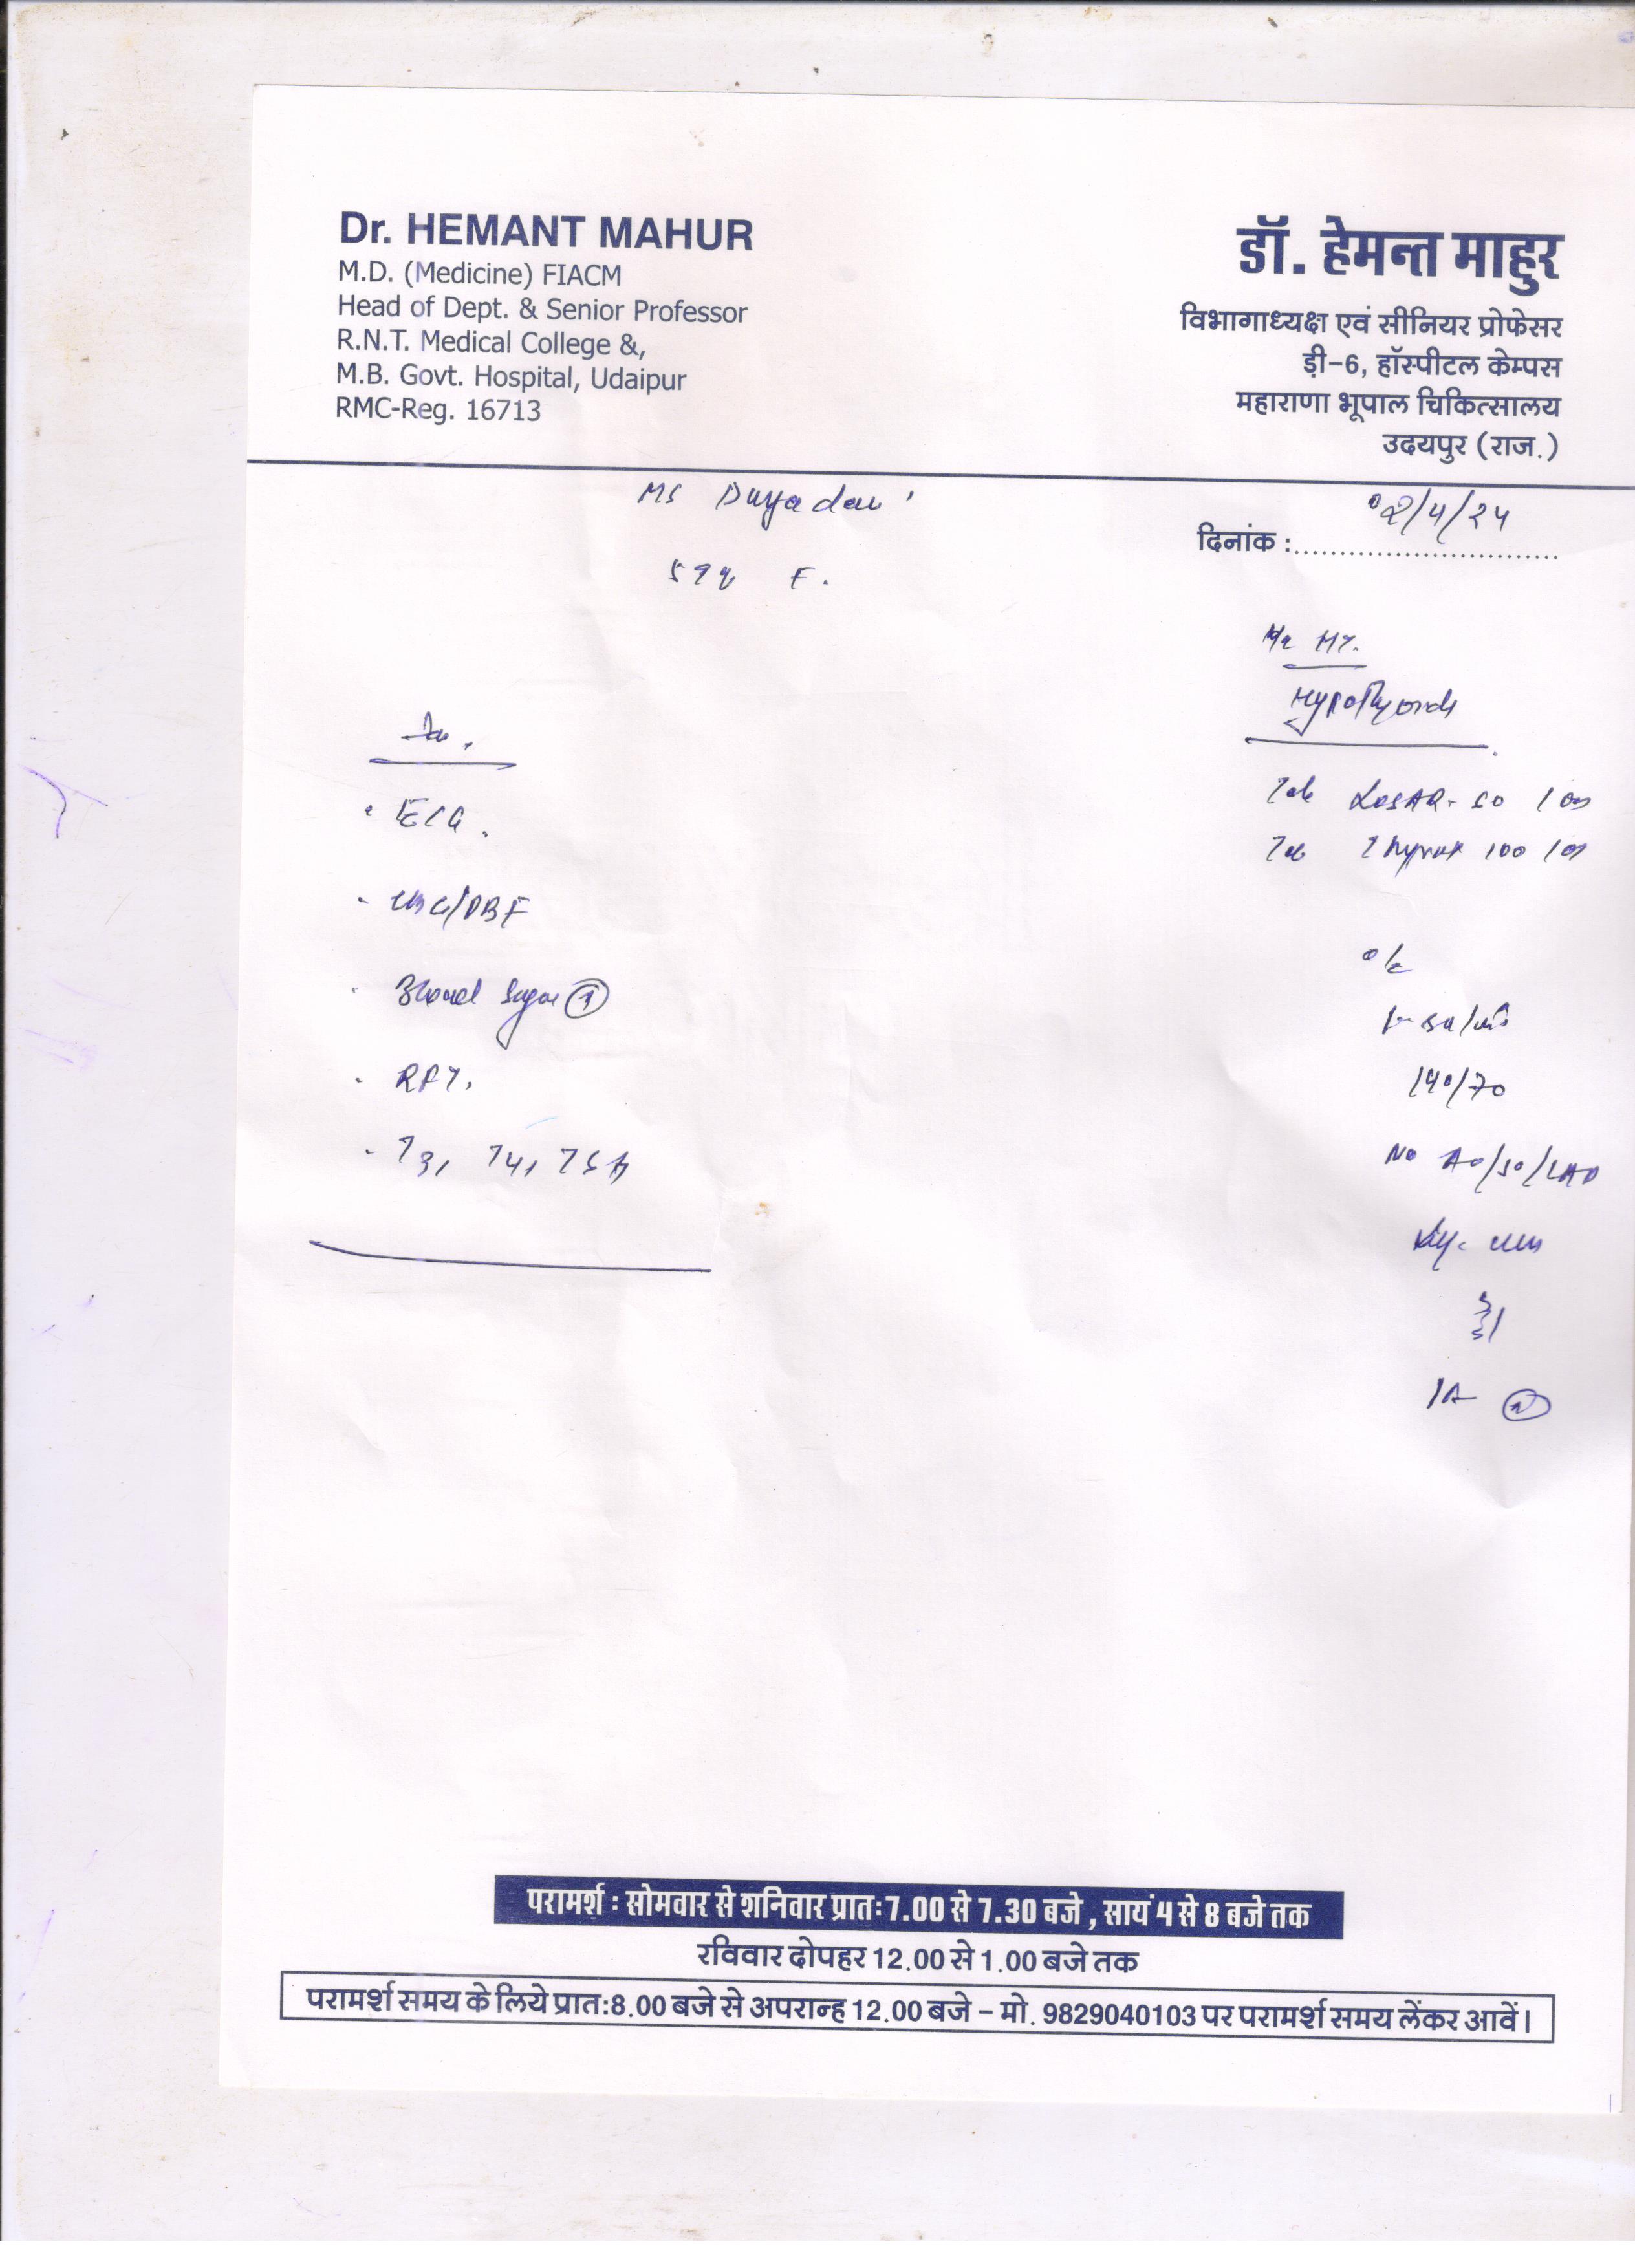 Dr. HEMANT MAHUR
M.D. (Medicine) FIACM
Head of Dept. & Senior Professor
R.N.T. Medical College &,
M.B. Govt. Hospital, Udaipur
RMC-Reg. 16713
डॉ. हेमन्त माहुर
विभागाध्यक्ष एवं सीनियर प्रोफेसर
ड़ी-6, हॉस्पीटल केम्पस
महाराणा भूपाल चिकित्सालय
उदयपुर (राज.)
Ms
दिनांक : 02/4/24
F.
ECG.
CBC/PBF
Blood Sugar
RFT.
T3, T4, TSH
Tab LOSAR-50 1 OD
Tab Thyrox 100 1 OD
O/E
140/70
परामर्श : सोमवार से शनिवार प्रातः 7.00 से 7.30 बजे , सायं 4 से 8 बजे तक
रविवार दोपहर 12.00 से 1.00 बजे तक
परामर्श समय के लिये प्रातः 8.00 बजे से अपरान्ह 12.00 बजे – मो. 9829040103 पर परामर्श समय लेंकर आवें।